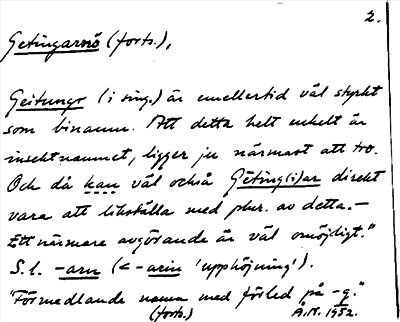 2.
Getingarnö (forts.),
Geitungr (i sing.) är emellertid väl styrkt
som binamn. Att detta helt enkelt är
insektnamnet, ligger ju närmast att tro.
Och då kan väl också Gēting(i)ar direkt
vara att likställa med plur. av detta.—
Ett närmare avgörande är väl omöjligt."
S. l. -arn (<-arin 'upphöjning').
"Förmedlande namn med förled på -g."
(forts.) A.M. 1952.